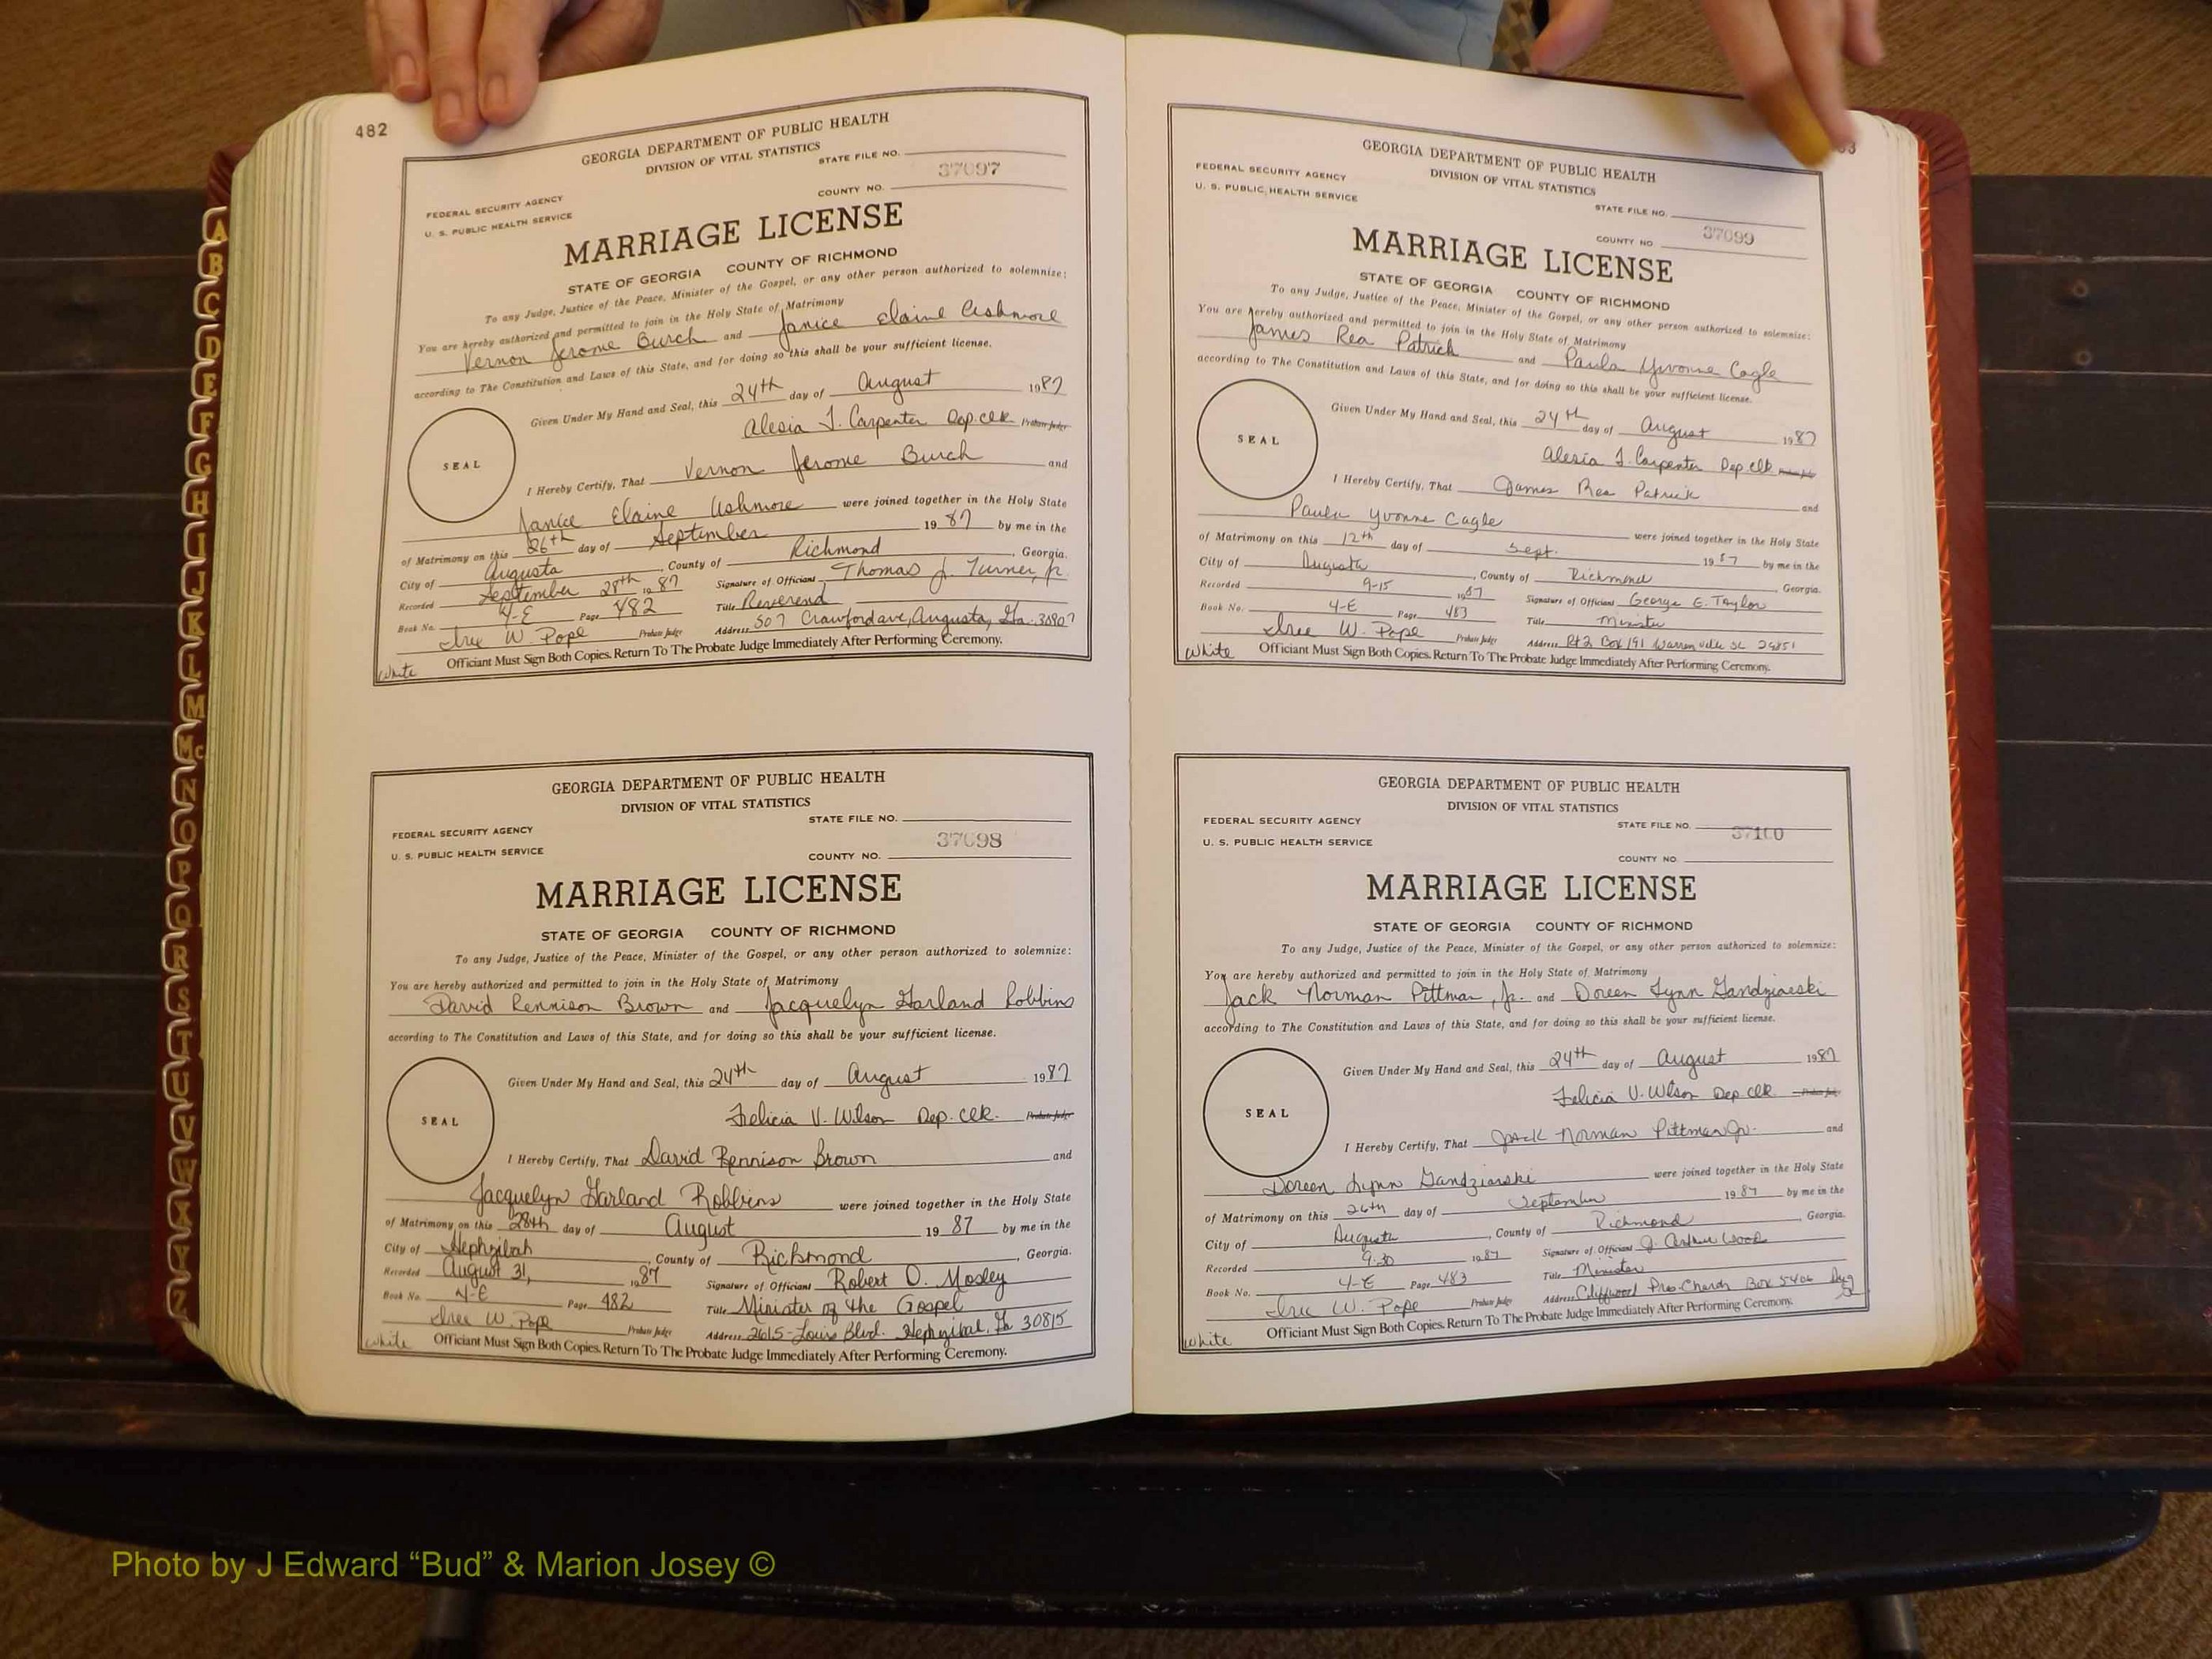 482
GEORGIA DEPARTMENT OF PUBLIC HEALTH
DIVISION OF VITAL STATISTICS
STATE FILE NO.
37097
FEDERAL SECURITY AGENCY
COUNTY NO.
U. S. PUBLIC HEALTH SERVICE
MARRIAGE LICENSE
STATE OF GEORGIA COUNTY OF RICHMOND
To any Judge, Justice of the Peace, Minister of the Gospel, or any other person authorized to solemnize:
You are hereby authorized and permitted to join in the Holy State of Matrimony
Vernon Jerome Burch and Janice Elaine Ashmore
according to The Constitution and Laws of this State, and for doing so this shall be your sufficient license.
Given Under My Hand and Seal, this 24th day of August 1987
Alesia J. Carpenter Dep. Clk Probate Judge
SEAL
I Hereby Certify, That Vernon Jerome Burch and
Janice Elaine Ashmore were joined together in the Holy State
of Matrimony on this 26th day of September 1987 by me in the
City of Augusta, County of Richmond, Georgia.
Recorded September 28th 1987 Signature of Officiant Thomas J. Turner, Jr.
Book No. 4-E Page 482 Title Reverend
W. Pope Probate Judge Address 507 Crawford ave, Augusta, Ga. 30907
Officiant Must Sign Both Copies. Return To The Probate Judge Immediately After Performing Ceremony.
White
GEORGIA DEPARTMENT OF PUBLIC HEALTH
DIVISION OF VITAL STATISTICS
STATE FILE NO.
FEDERAL SECURITY AGENCY
37098
U. S. PUBLIC HEALTH SERVICE
COUNTY NO.
MARRIAGE LICENSE
STATE OF GEORGIA COUNTY OF RICHMOND
To any Judge, Justice of the Peace, Minister of the Gospel, or any other person authorized to solemnize:
You are hereby authorized and permitted to join in the Holy State of Matrimony
David Rennison Brown and Jacquelyn Garland Robbins
according to The Constitution and Laws of this State, and for doing so this shall be your sufficient license.
Given Under My Hand and Seal, this 24th day of August 1987
Felicia V. Wilson Dep. Clk. Probate Judge
SEAL
I Hereby Certify, That David Rennison Brown and
Jacquelyn Garland Robbins were joined together in the Holy State
of Matrimony on this 28th day of August 1987 by me in the
City of Hephzibah, County of Richmond, Georgia.
Recorded August 31, 1987 Signature of Officiant Robert O. Mosley
Book No. 4-E Page 482 Title Minister of the Gospel
W. Pope Probate Judge Address 2615-Louis Blvd. Hephzibah, Ga 30815
White Officiant Must Sign Both Copies. Return To The Probate Judge Immediately After Performing Ceremony.
GEORGIA DEPARTMENT OF PUBLIC HEALTH
DIVISION OF VITAL STATISTICS
FEDERAL SECURITY AGENCY
U. S. PUBLIC HEALTH SERVICE
STATE FILE NO.
37099
COUNTY NO
MARRIAGE LICENSE
STATE OF GEORGIA COUNTY OF RICHMOND
To any Judge, Justice of the Peace, Minister of the Gospel, or any other person authorized to solemnize:
You are hereby authorized and permitted to join in the Holy State of Matrimony
James Rea Patrick and Paula Yvonne Cagle
according to The Constitution and Laws of this State, and for doing so this shall be your sufficient license.
Given Under My Hand and Seal, this 24th day of August 1987
Alesia J. Carpenter Dep. Clk
SEAL
I Hereby Certify, That James Rea Patrick and
Paula Yvonne Cagle were joined together in the Holy State
of Matrimony on this 12th day of Sept. 1987 by me in the
City of Augusta, County of Richmond Georgia.
Recorded 9-15 1987 Signature of Officiant George E. Taylor
Book No. 4-E Page 483 Title Minister
W. Pope Probate Judge Address Rt 2 Box 191 Warrenville SC 29851
White Officiant Must Sign Both Copies. Return To The Probate Judge Immediately After Performing Ceremony.
GEORGIA DEPARTMENT OF PUBLIC HEALTH
DIVISION OF VITAL STATISTICS
FEDERAL SECURITY AGENCY
STATE FILE NO.
37100
U. S. PUBLIC HEALTH SERVICE
COUNTY NO
MARRIAGE LICENSE
STATE OF GEORGIA COUNTY OF RICHMOND
To any Judge, Justice of the Peace, Minister of the Gospel, or any other person authorized to solemnize:
You are hereby authorized and permitted to join in the Holy State of Matrimony
Jack Norman Pittman, Jr. and Doreen Lynn Gandziarski
according to The Constitution and Laws of this State, and for doing so this shall be your sufficient license.
Given Under My Hand and Seal, this 24th day of August 1987
Felicia V. Wilson Dep. Clk
SEAL
I Hereby Certify, That Jack Norman Pittman Jr. and
Doreen Lynn Gandziarski were joined together in the Holy State
of Matrimony on this 26th day of September 1987 by me in the
City of Augusta, County of Richmond, Georgia.
Recorded 9-30 1987 Signature of Officiant J. Arthur Wood
Book No. 4-E Page 483 Title Minister
W. Pope Probate Judge Address Cliffwood Pres. Church Box 5406 Aug
White Officiant Must Sign Both Copies. Return To The Probate Judge Immediately After Performing Ceremony.
A
B
C
D
E
F
G
H
I
J
K
L
M
Mc
N
O
P
Q
R
S
T
U
V
W
X
Y
Z
Photo by J Edward “Bud” & Marion Josey ©